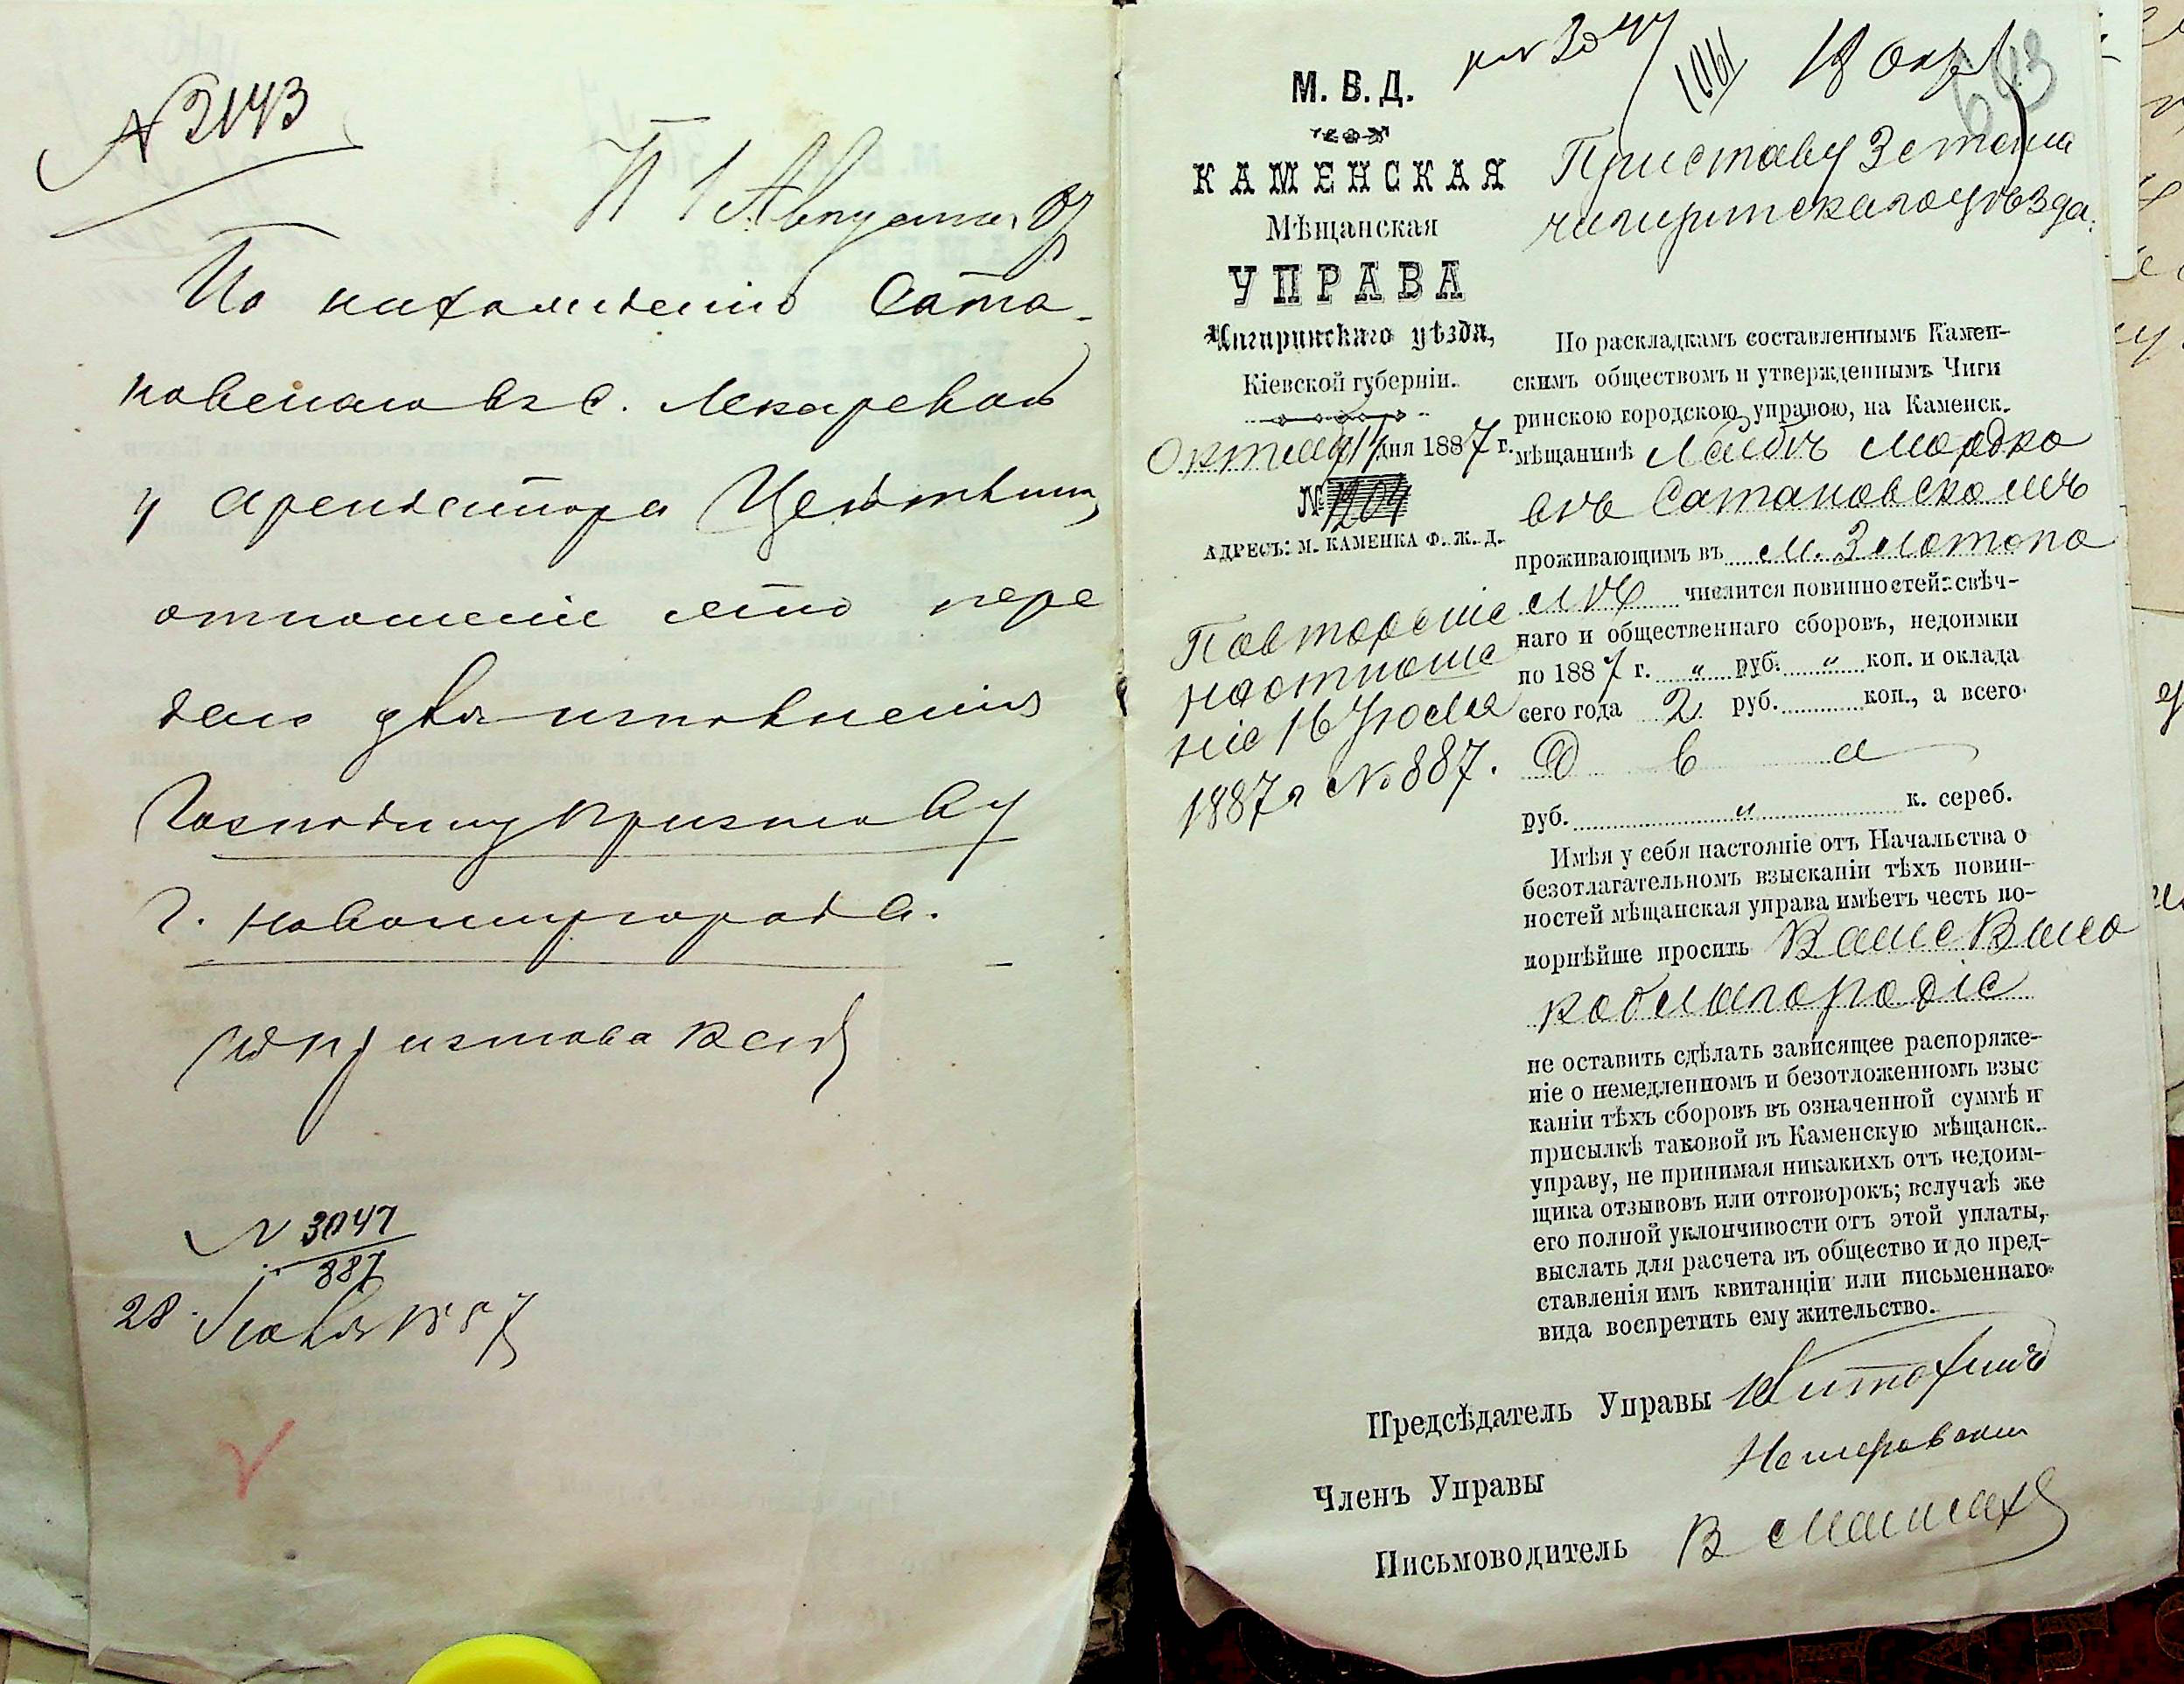 № 2143
П 1 Августа 87
По нахожденію Сата-
новскаго въ с. Лекаревомъ
у арендатора
отношеніе это пере
дано для исполненія
Господину Приставу
г. Новомиргорода.
Пристава
№ 3047
887
28 Іюля 1887
3047
1061
18 Окт
643
М. В. Д.
КАМЕНСКАЯ
Мѣщанская
УПРАВА
Чигиринскаго уѣзда,
Кіевской губерніи.
Октября 17 дня 1887 г.
№ 1204
АДРЕСЪ: М. КАМЕНКА Ф. Ж. Д.
Повтореніе
на отноше
ніе 16 Іюля
1887 г № 887.
Приставу 3 стана
Чигиринскаго уѣзда.
По раскладкамъ составленнымъ Камен-
скимъ обществомъ и утвержденнымъ Чиги
ринскою городскою управою, на Каменск.
мѣщанинѣ Лейбѣ Мордко
вѣ Сатановскомъ
проживающимъ въ м. Златопо
лѣ числится повинностей: свѣч-
наго и общественнаго сборовъ, недоимки
по 1887 г. " руб. " коп. и оклада
сего года 2 руб. коп., а всего
Два
руб. " к. сереб.
Имѣя у себя настояніе отъ Начальства о
безотлагательномъ взысканіи тѣхъ повин-
ностей мѣщанская управа имѣетъ честь по-
корнѣйше просить Ваше Высо
коблагородіе
не оставить сдѣлать зависящее распоряже-
ніе о немедленномъ и безотложенномъ взыс
каніи тѣхъ сборовъ въ означенной суммѣ и
присылкѣ таковой въ Каменскую мѣщанск.
управу, не принимая никакихъ отъ недоим-
щика отзывовъ или отговорокъ; вслучаѣ же
его полной уклончивости отъ этой уплаты,
выслать для расчета въ общество и до пред-
ставленія имъ квитанціи или письменнаго
вида воспретить ему жительство.
Предсѣдатель Управы
Членъ Управы
Письмоводитель В